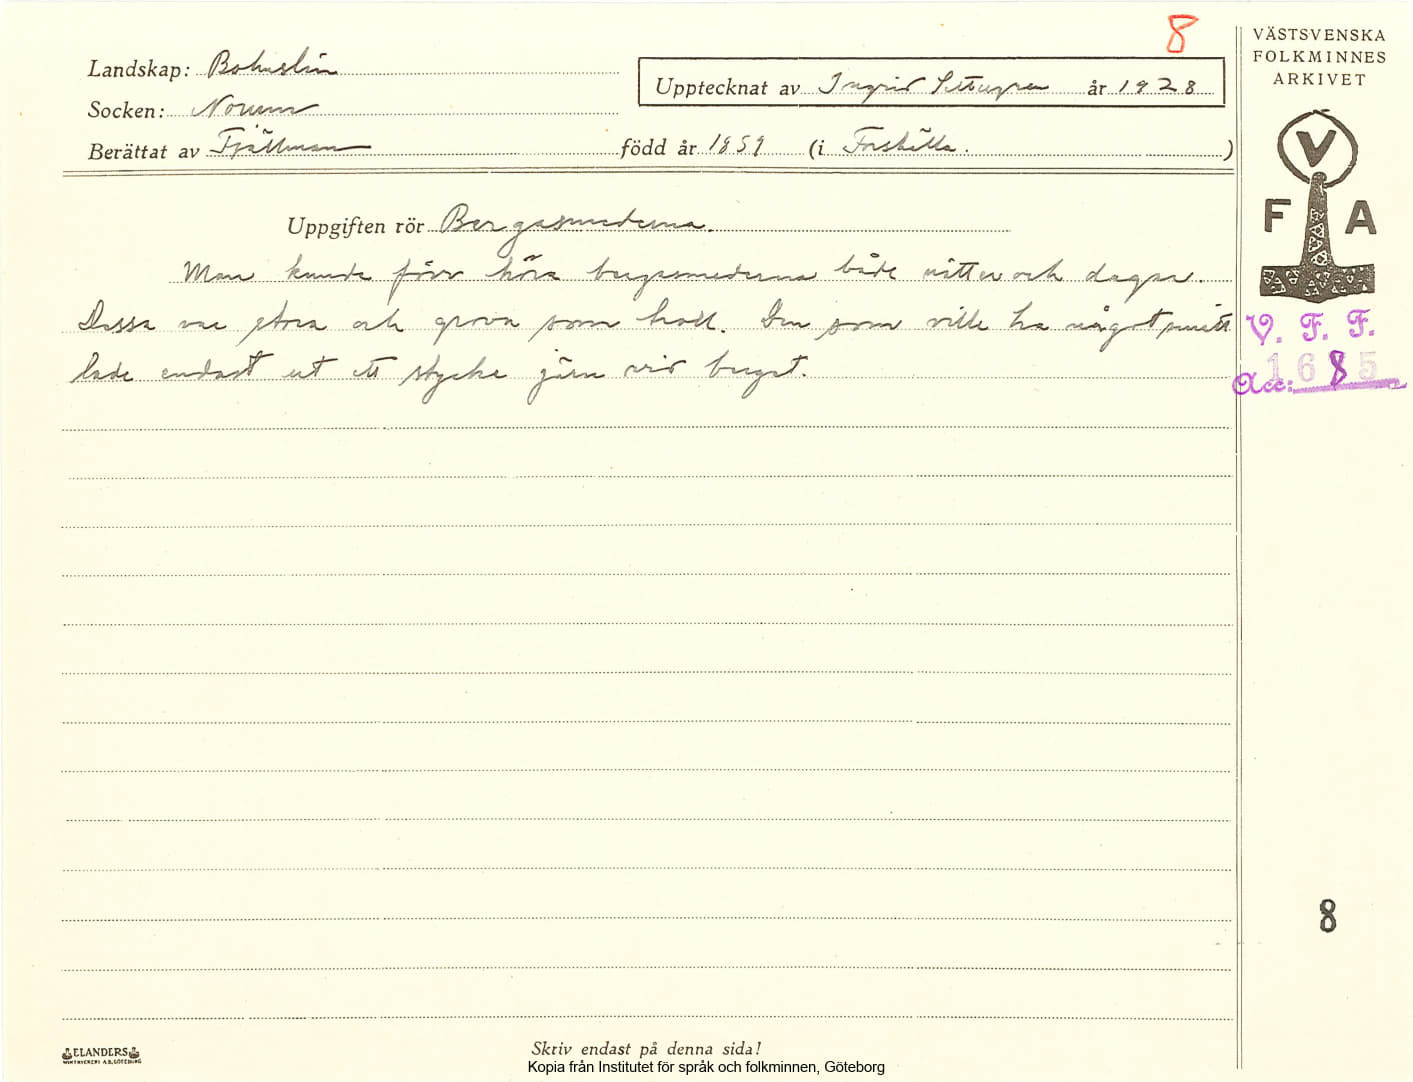 8
VÄSTSVENSKA
FOLKMINNES
ARKIVET
Landskap: Bohuslän
Upptecknat av Ingrid år 1928
Socken: Norum
Berättat av Tjällman född år 1859 (i Forshälla.)
V
F A
Uppgiften rör Bergasmederna.
Man kunde förr höra bergsmederna både nätter och dagar.
Dessa var stora och grova som troll. Den som ville ha något smitt
lade endast ut ett stycke järn vid berget.
V. F. F.
Acc: 1685
8
ELANDERS
Skriv endast på denna sida!
Kopia från Institutet för språk och folkminnen, Göteborg